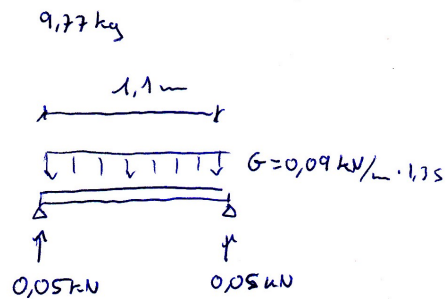 9,77 kg
1,1m
G=0,09 kN/m · 1,35
0,05kN 0,05kN